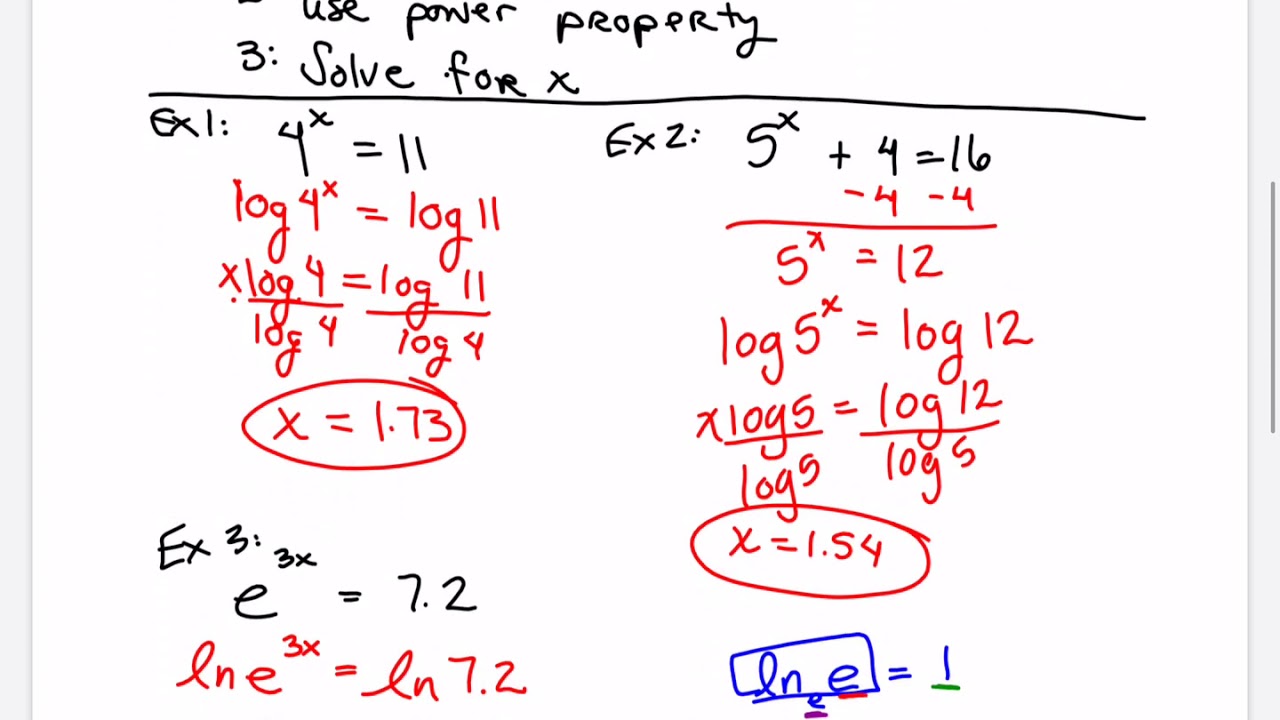 use power property
3: Solve for x
Ex 1: 4^x = 11
log 4^x = log 11
x log 4 = log 11
log 4 log 4
x = 1.73
Ex 2: 5^x + 4 = 16
-4 -4
5^x = 12
log 5^x = log 12
x log 5 = log 12
log 5 log 5
x = 1.54
Ex 3:
e^3x = 7.2
ln e^3x = ln 7.2
ln_e e = 1